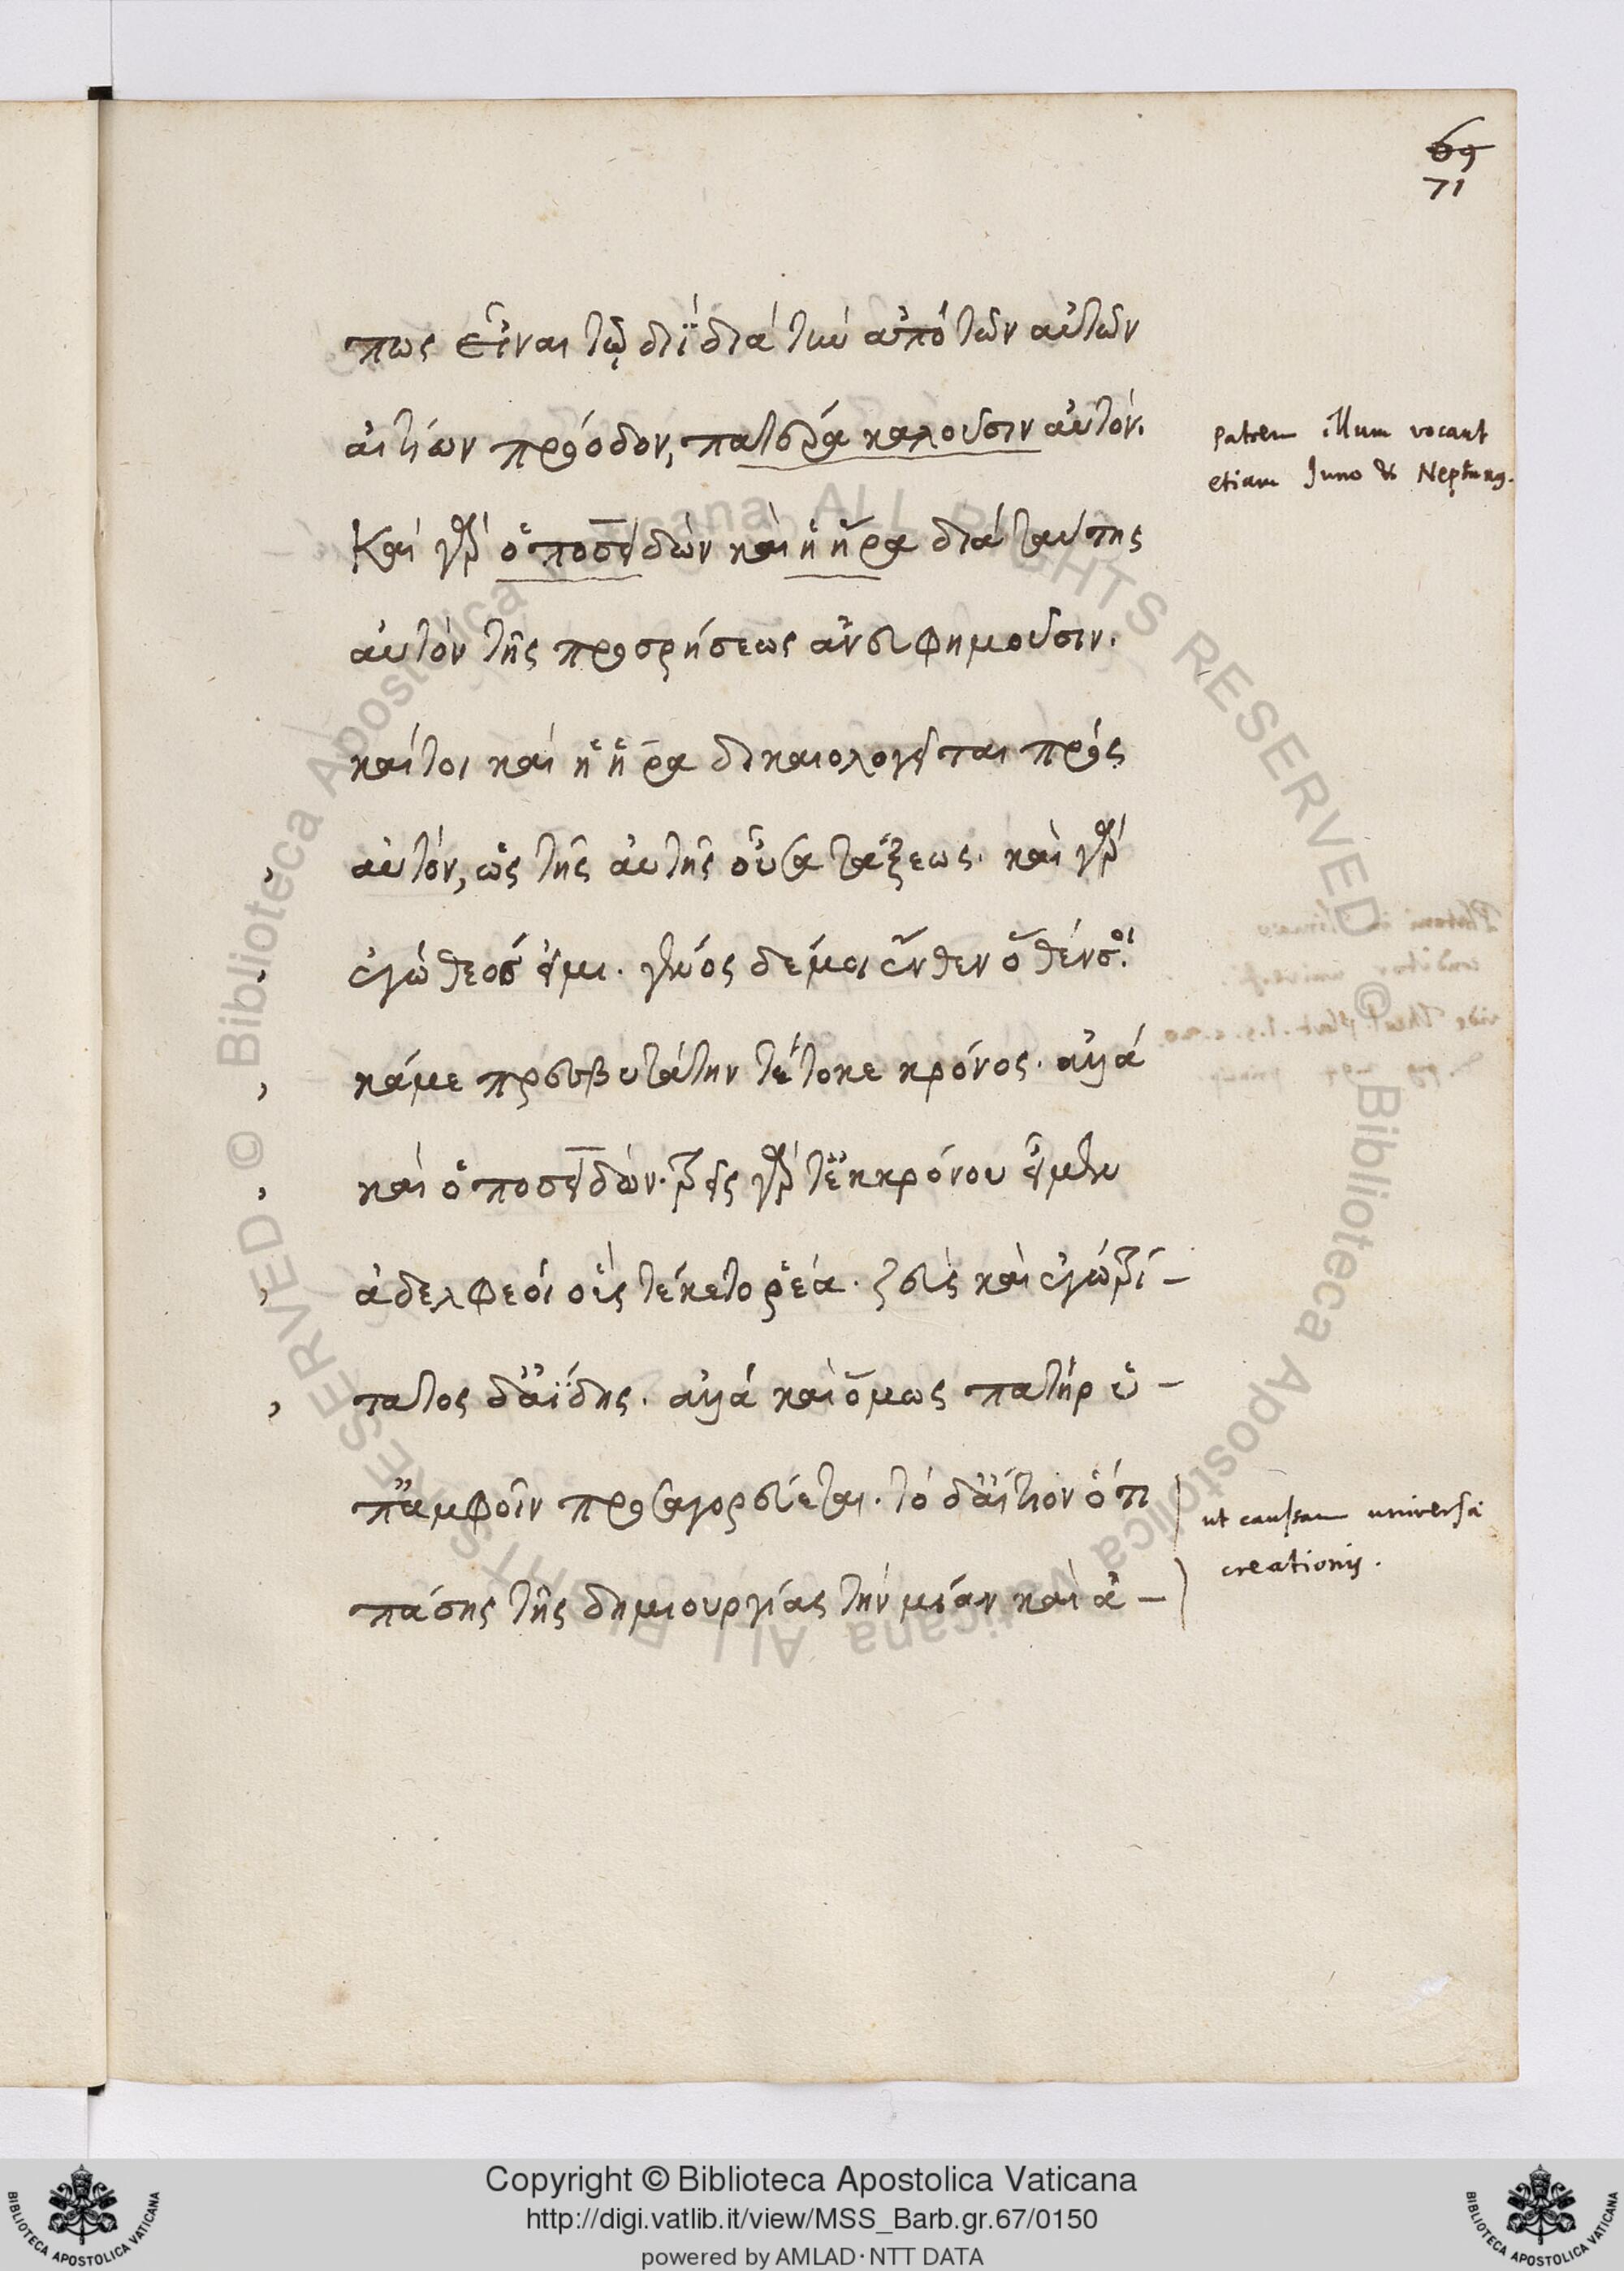 69
71
πως εἶναι τῷ διῒ διὰ τὴν ἀπὸ τῶν αὐτῶν
αἰτίων πρόοδον, πατέρα καλοῦσιν αὐτόν.
Καὶ γὰρ ὁ ποσειδῶν καὶ ἡ ἥρα διὰ ταύτης
αὐτὸν τῆς προσρήσεως ἀνευφημοῦσιν.
καίτοι καὶ ἡ ἥρα δικαιολογεῖται πρὸς
αὐτόν, ὡς τῆς αὐτῆς οὖσα τάξεως. καὶ γὰρ
ἐγὼ θεός εἰμι. γένος δέ μοι ἔνθεν ὅθεν σοί.
κάμε πρεσβυτάτην τέτοκε κρόνος. ἀλλὰ
καὶ ὁ ποσειδῶν. τρεῖς γὰρ τ' ἐκ κρόνου εἰμὲν
ἀδελφεοί οὓς τέκετο ῥέα. ζεὺς καὶ ἐγὼ τρί-
τατος δ' ἀΐδης. ἀλλὰ καὶ ὅμως πατὴρ ὑ-
π' ἀμφοῖν προσαγορεύεται. τὸ δ' αἴτιον ὅτι
πάσης τῆς δημιουργίας τὴν μίαν καὶ ἀ-
patrem illum vocant
etiam Juno & Neptunus.
ut causam universae
creationis.
Copyright © Biblioteca Apostolica Vaticana
http://digi.vatlib.it/view/MSS_Barb.gr.67/0150
powered by AMLAD·NTT DATA
BIBLIOTECA APOSTOLICA VATICANA
BIBLIOTECA APOSTOLICA VATICANA
© Biblioteca Apostolica Vaticana ALL RIGHTS RESERVED © Biblioteca Apostolica Vaticana ALL RIGHTS RESERVED